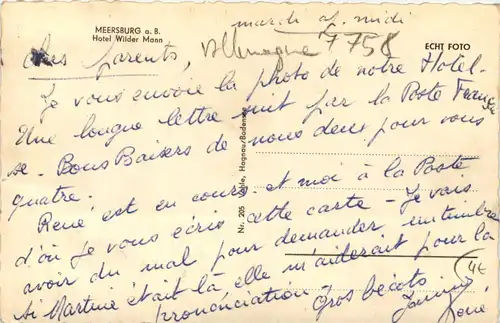 MEERSBURG a. B.
Hotel Wilder Mann
ECHT FOTO
mardi ap. midi
Chers parents, Allemagne 7758
Je vous envoie la photo de notre Hotel-
Une longue lettre suit par la Poste França
se - Bons Baisers de nous deux pour vous
quatre.
René est en course et moi à la Poste
d'où je vous écris cette carte - Je vais
avoir du mal pour demander un timbre
si Martine était là elle m'aiderait pour la
prononciation Gros bécots
Nr. 205 Hagnau/Bodensee
4€